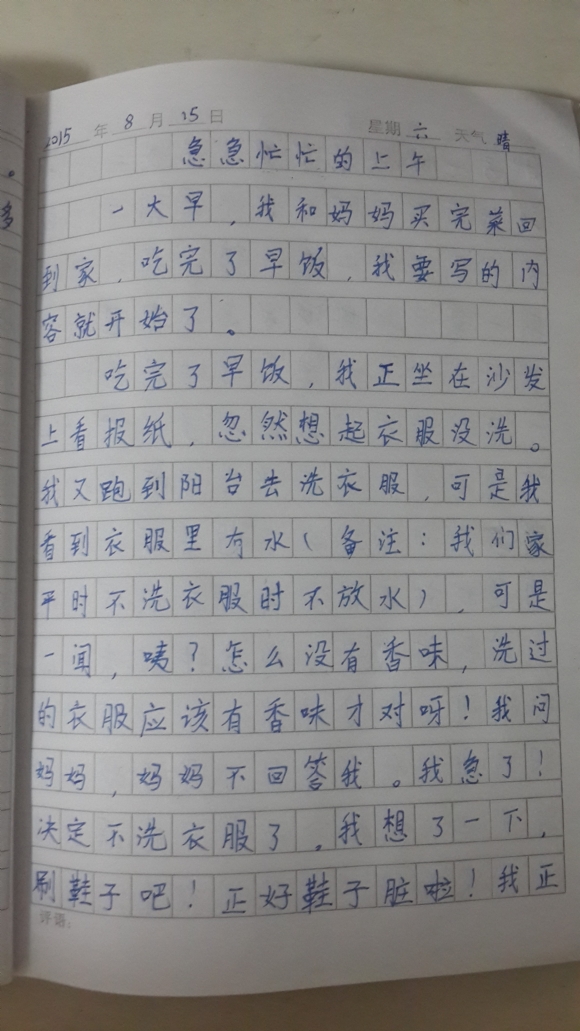 2015 年 8 月 15 日 星期 六 天气 晴
急急忙忙的上午
一大早，我和妈妈买完菜回
到家，吃完了早饭，我要写的内
容就开始了。
吃完了早饭，我正坐在沙发
上看报纸，忽然想起衣服没洗。
我又跑到阳台去洗衣服，可是我
看到衣服里有水（备注：我们家
平时不洗衣服时不放水），可是
一闻，咦？怎么没有香味，洗过
的衣服应该有香味才对呀！我问
妈妈，妈妈不回答我。我急了！
决定不洗衣服了。我想了一下，
刷鞋子吧！正好鞋子脏啦！我正
评语：
。
多